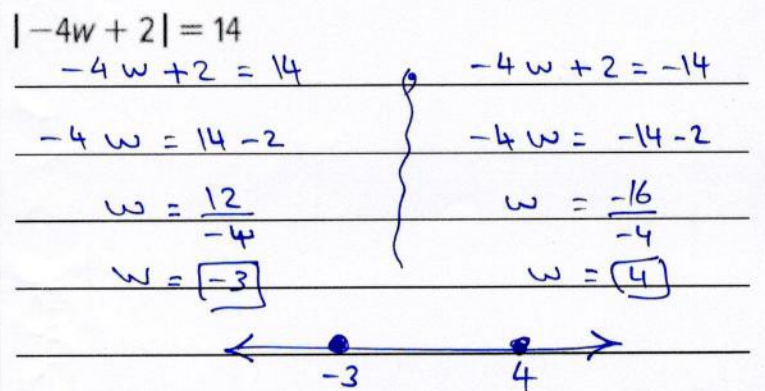 |−4w + 2| = 14
-4w + 2 = 14
-4w = 14 - 2
w = 12/-4
w = -3
-4w + 2 = -14
-4w = -14 - 2
w = -16/-4
w = 4
-3 4